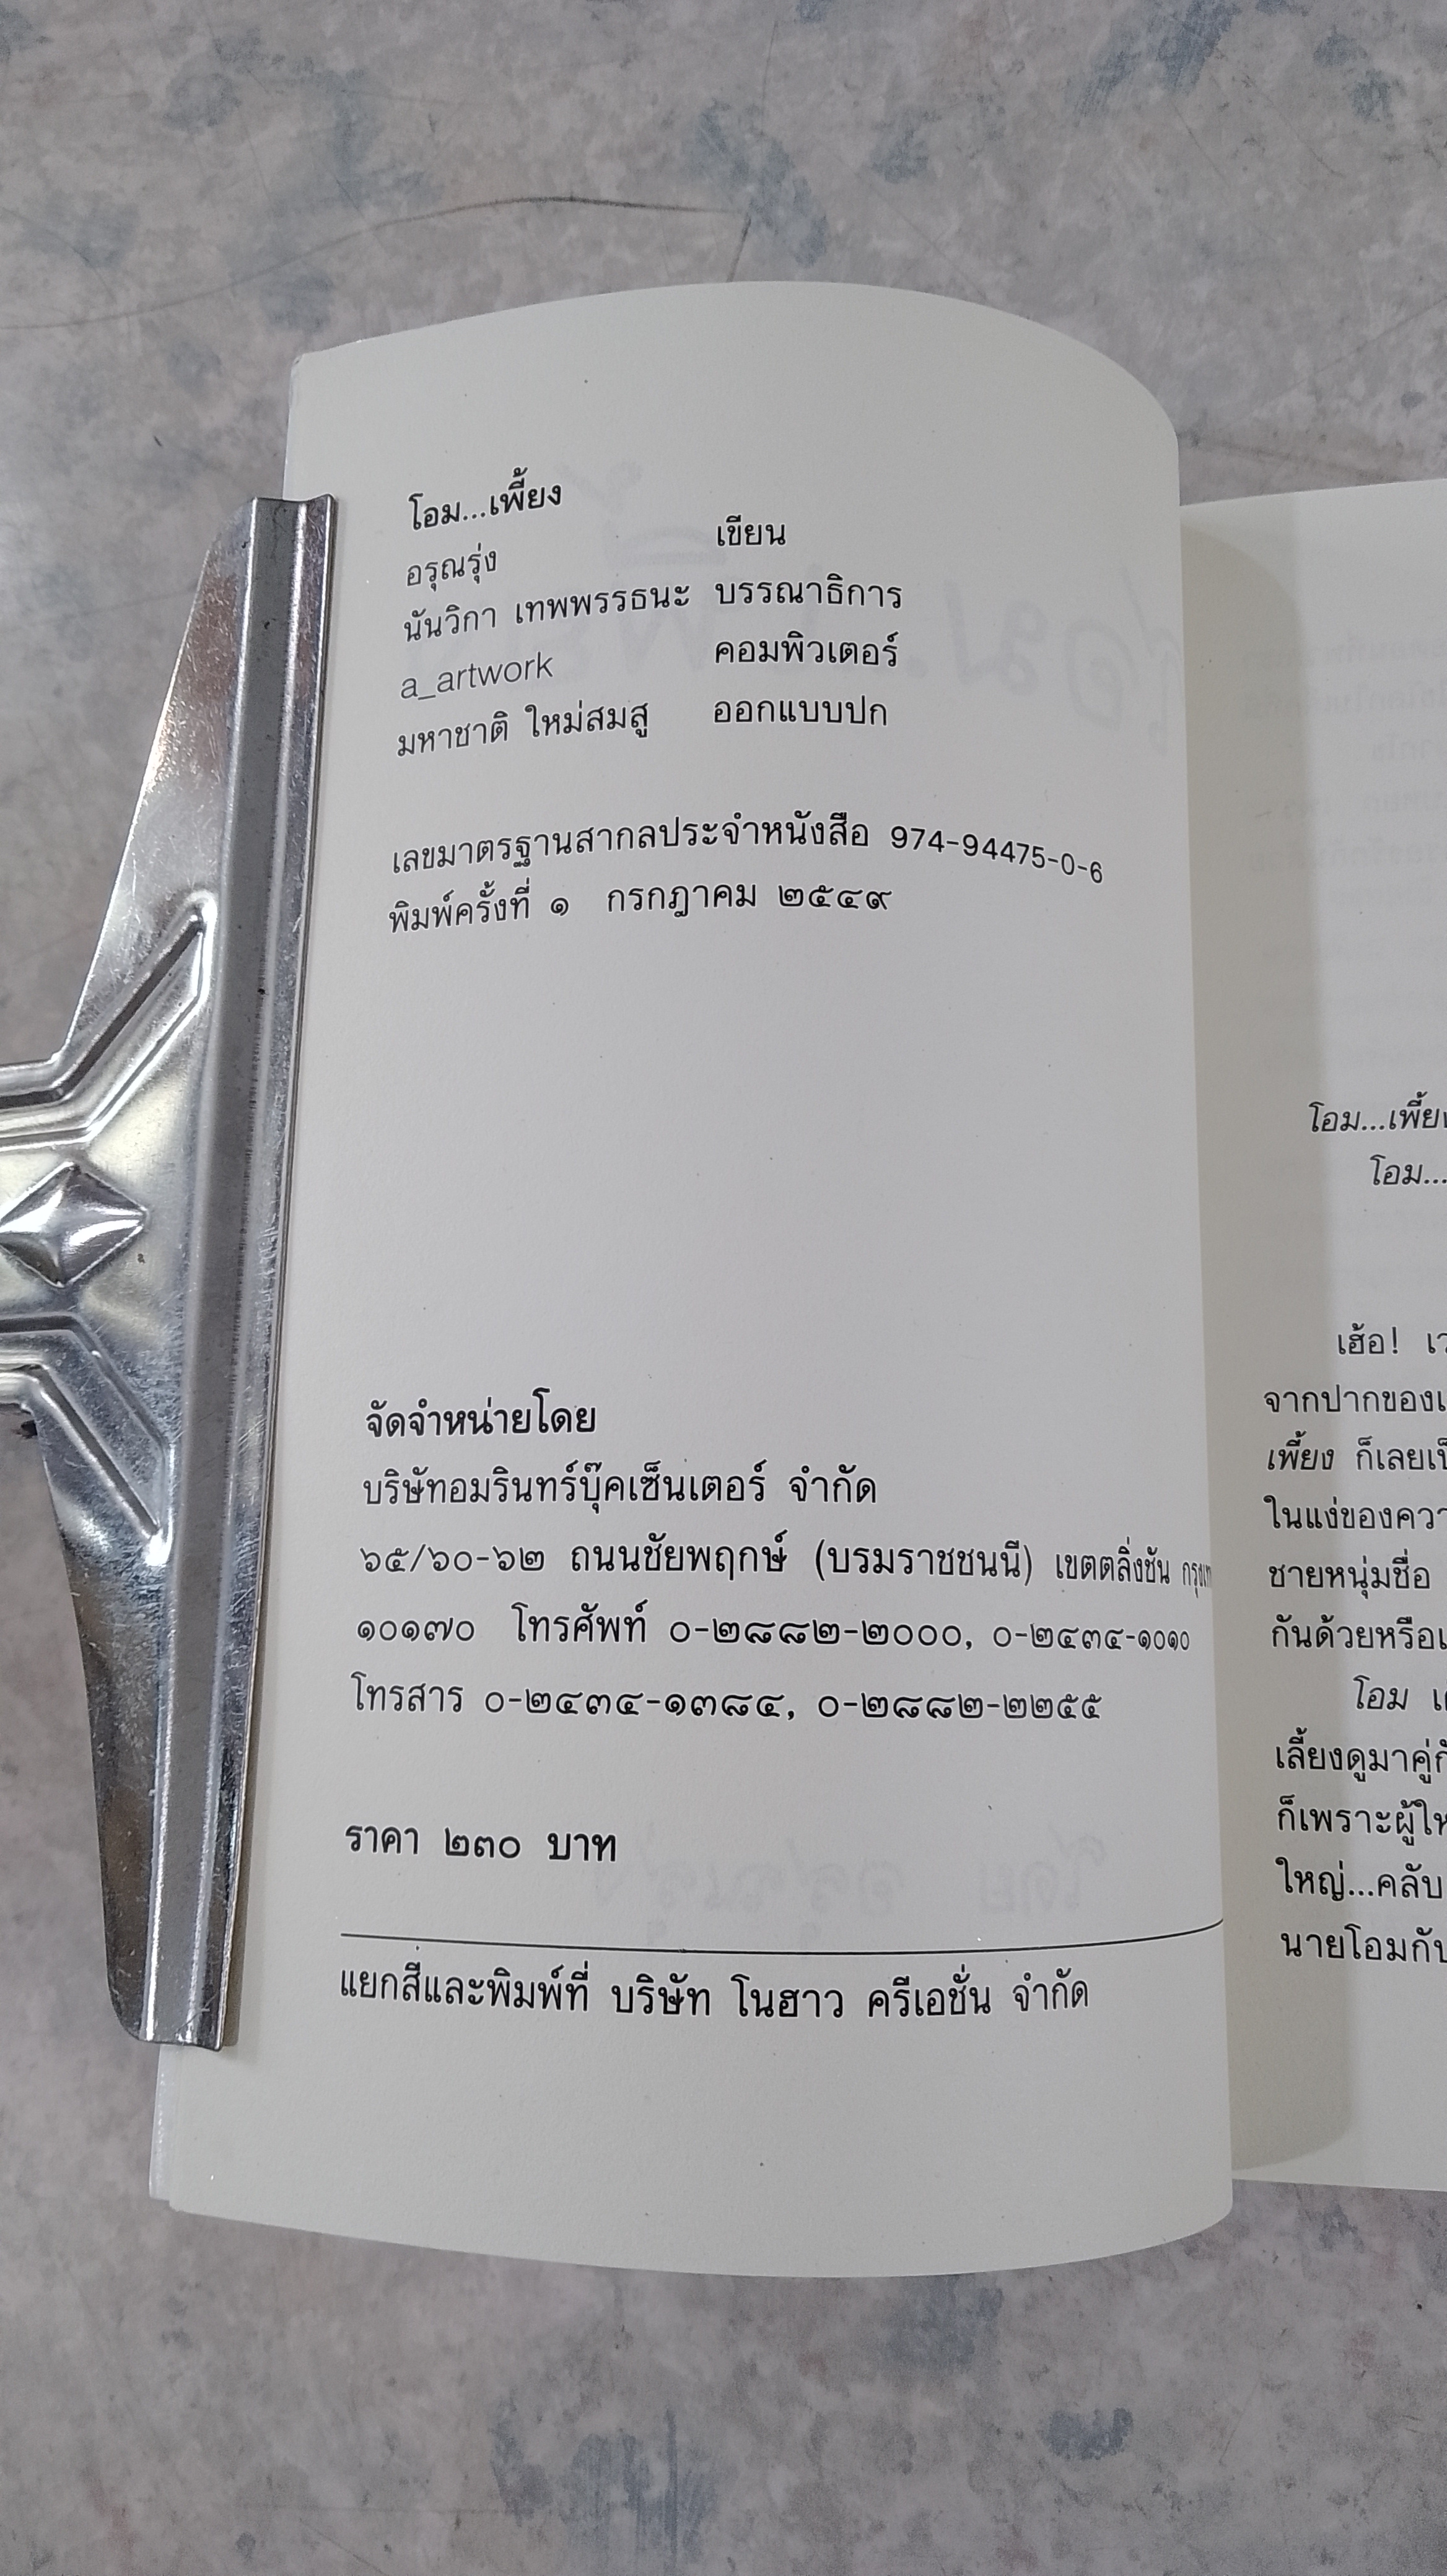 โอม...เพี้ยง
อรุณรุ่ง เขียน
นันวิกา เทพพรรธนะ บรรณาธิการ
a_artwork คอมพิวเตอร์
มหาชาติ ใหม่สมสู ออกแบบปก
เลขมาตรฐานสากลประจำหนังสือ 974-94475-0-6
พิมพ์ครั้งที่ ๑ กรกฎาคม ๒๕๔๙
จัดจำหน่ายโดย
บริษัทอมรินทร์บุ๊คเซ็นเตอร์ จำกัด
๖๕/๖๐-๖๒ ถนนชัยพฤกษ์ (บรมราชชนนี) เขตตลิ่งชัน
๑๐๑๗๐ โทรศัพท์ ๐-๒๘๘๒-๒๐๐๐, ๐-๒๔๓๔-๑๐๑๐
โทรสาร ๐-๒๔๓๔-๑๓๘๔, ๐-๒๘๘๒-๒๒๕๕
ราคา ๒๓๐ บาท
แยกสีและพิมพ์ที่ บริษัท โนฮาว ครีเอชั่น จำกัด
โอม...เพี้ยง
โอม...
เฮ้อ!
จากปากของ
เพี้ยง ก็เลย
ในแง่ของ
ชายหนุ่มชื่อ
กันด้วยหรือ
โอม
เลี้ยงดูมา
ก็เพราะ
ใหญ่...คลับ
นายโอมกับ